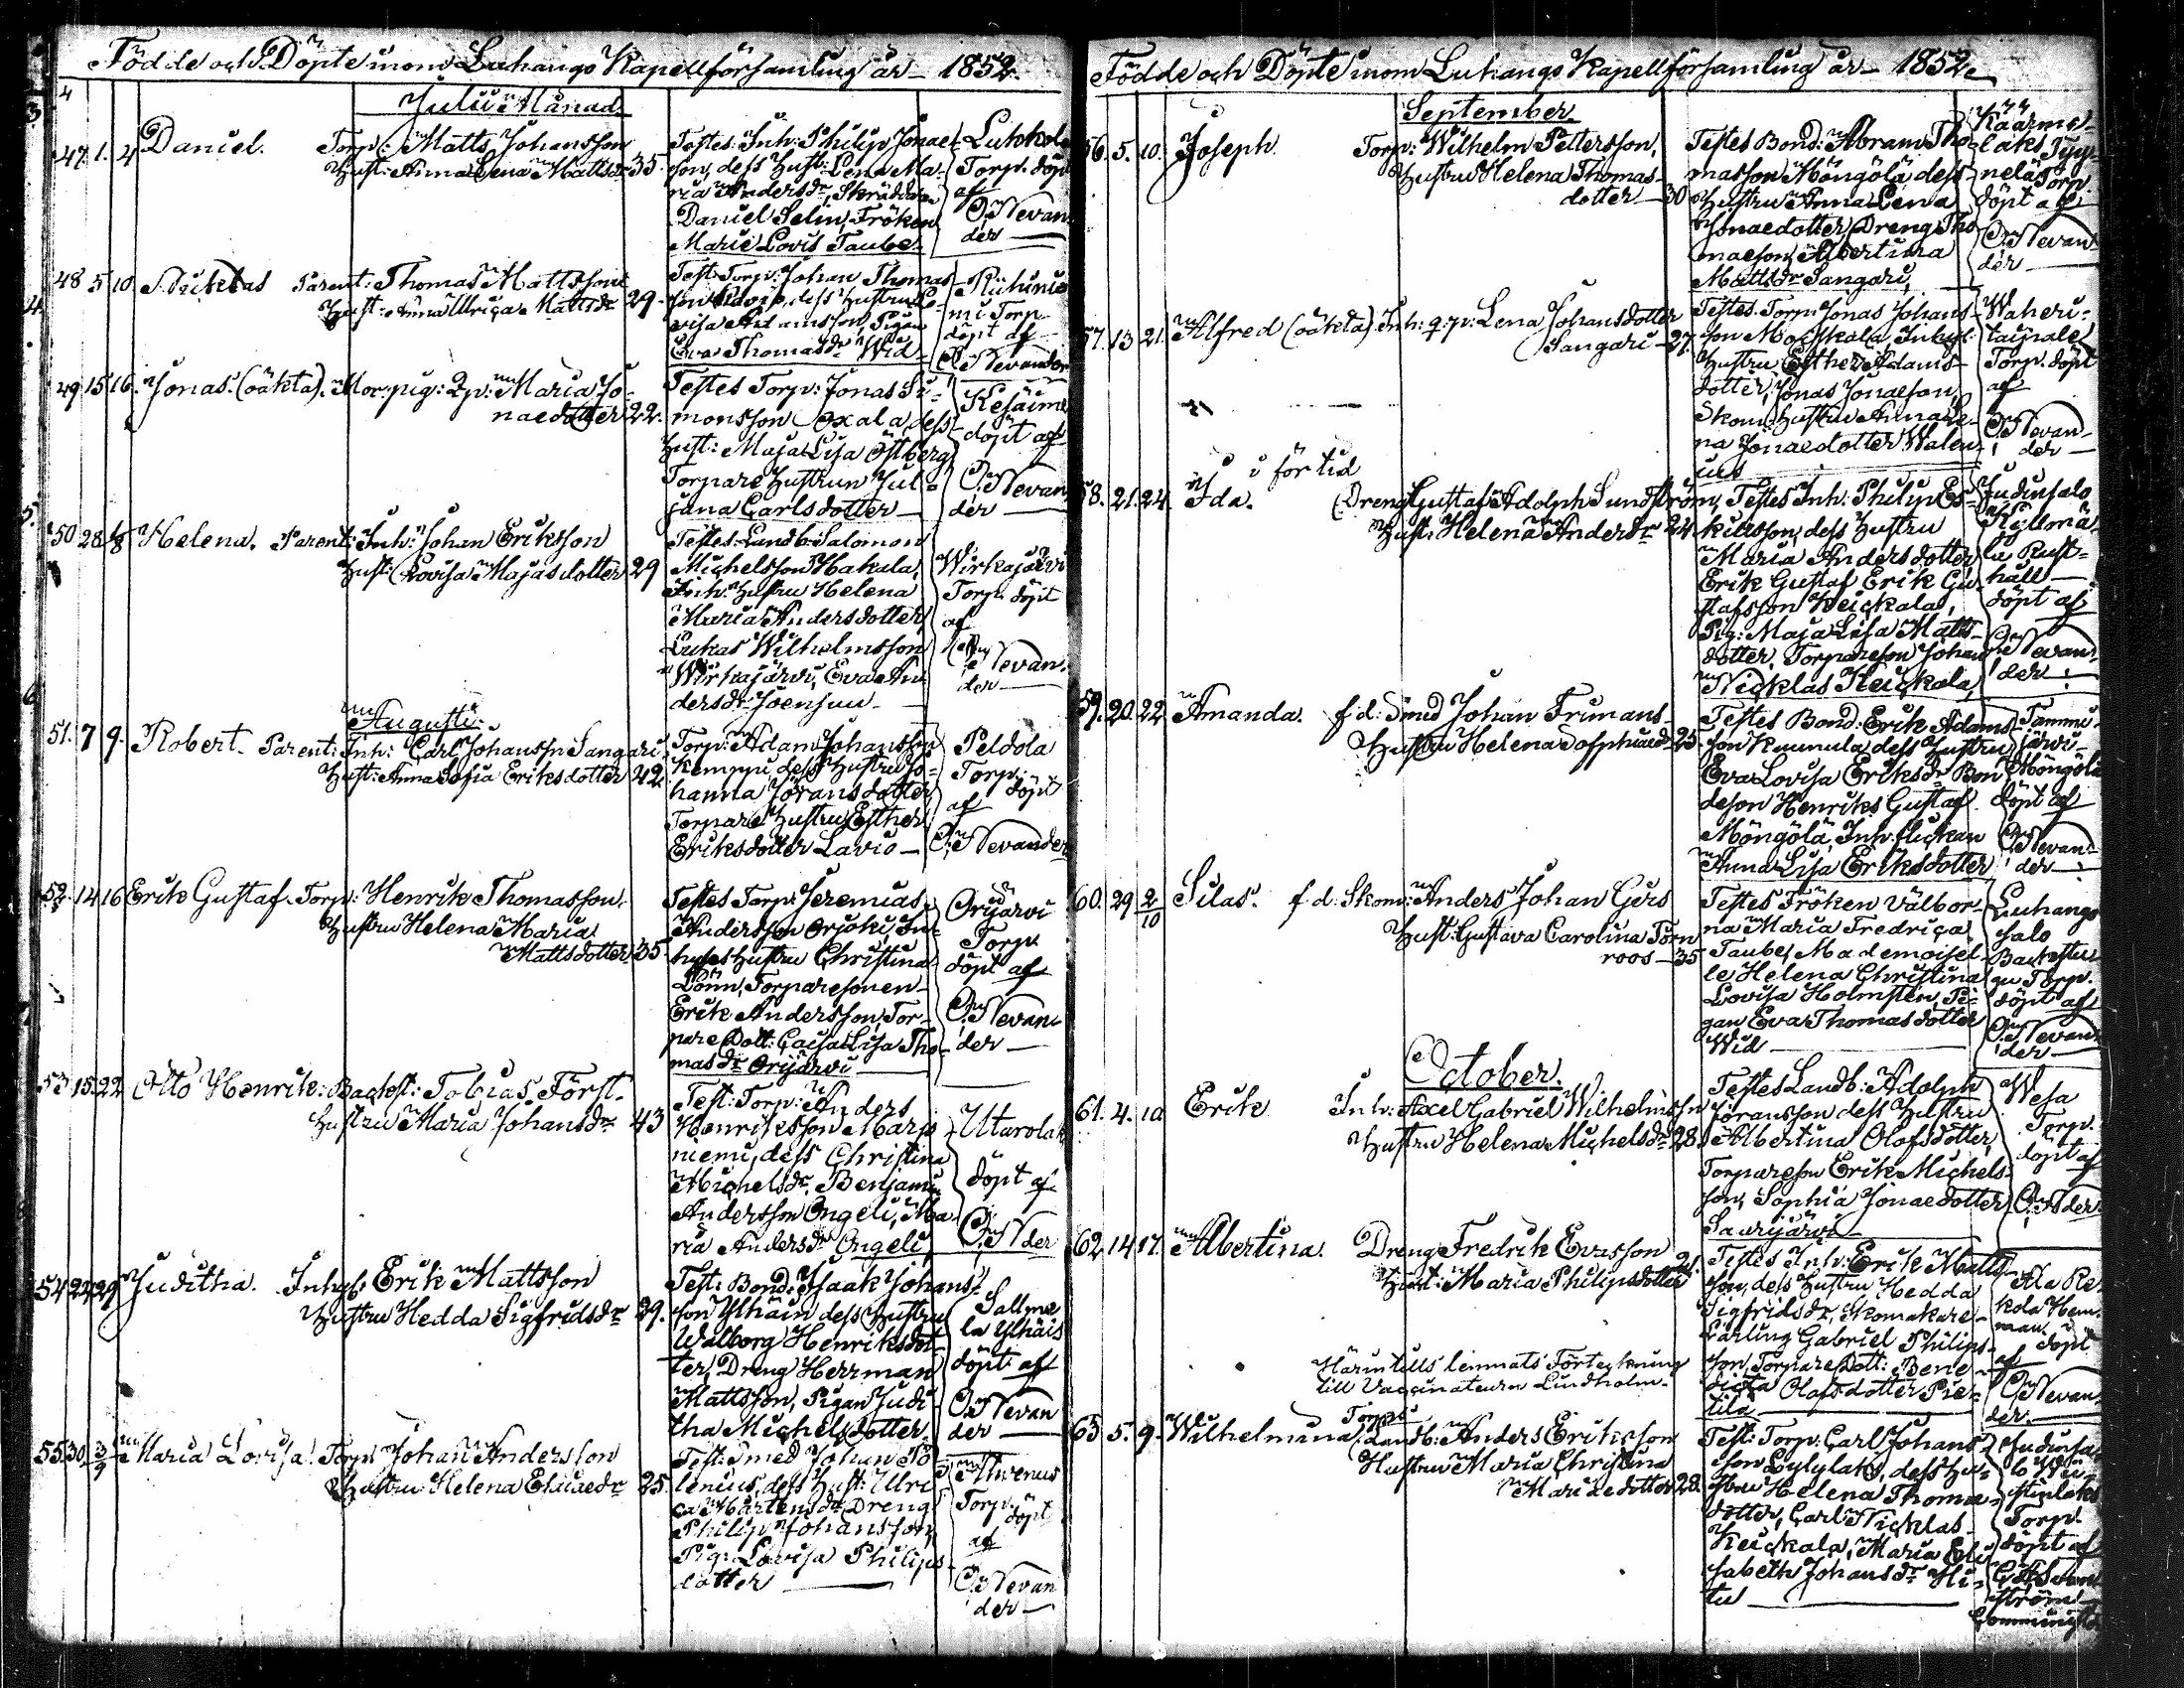 Födde och Döpte inom Luhango Kapellförsamling år 1852.
Julii Månad
47. 1. 4 Daniel. Torp: Matts Johansson
Hust: Anna Lena Mattsdr 35
Testes: Inh: Philip Jonae-
son, dess Hust: Lena Ma-
ria Andersdr, Skräddaren
Daniel Selin, Fröken
Marie Lovis Taube
Torp. döpt
af
O. Nevan
der
48 5 10 Parent: Thomas Mattsson
Hust: Anna Ulrica Mattsdr 29
Test: Torp: Johan Thomas
son dess Hustru Lo-
visa Adamsson, Pigan
Eva Thomasdr Wid
Riihinie
mi Torp
döpt af
O. Nevander
49 15 16. Jonas. (oäkta). Mor: pig: Qp: Maria Jo-
naedotter 22.
Testes Torp: Jonas Si-
monsson Oxala, dess
Hust: Maja Lisa Östberg
Torpare Hustrun Jul-
jana Carlsdotter
döpt af
O. Nevan
der
50 28 1/8 Helena. Parent: Inh: Johan Eriksson
Hust: Lovisa Majasdotter 29
Testes: Landb: Salomon
Michelsson Hakala,
Inh: Hustru Helena
Maria Andersdotter
Lukas Wilhelmsson
Wirkajärvi, Eva An-
dersdr Joensuu
Wirkajärvi
Torp. döpt
af
O. Nevan-
der
Augusti
51. 7 9. Robert. Parent: Inh: Carl Johansson Sangari
Hust: Anna Sofia Eriksdotter 42
Torp: Adam Johansson
Kemppi, dess Hustru Jo-
hanna Göransdotter
Torpare Hustru Esther
Eriksdotter Lavio
Peldola
Torp.
döpt
af
O. Nevander
52. 14 16 Erik Gustaf. Torp: Henrik Thomasson
Hustru Helena Maria
Mattsdotter 35
Testes Torp: Jeremias
Andersson Orjoki, In-
hyses Hustru Christina
Lönn, Torparesonen
Erik Andersson, Tor-
pare Dott: Caisa Lisa Tho-
masdr Orijärvi
Orijärvi
Torp.
döpt af
O. Nevan-
der
53 15. 22 Otto Henrik. Backst: Tobias Först.
Hustru Maria Johansdr 43
Test: Torp: Anders
Henriksson Marjo
niemi, dess Christina
Michelsdr, Benjamin
Andersson Ongeli, Ma-
ria Andersdr Ongeli
Utarola
döpt af
O. Nder
54 22 29 Juditha. Inhys: Erik Mattsson
Hustru Hedda Sigfridsdr 39.
Test: Bond: Isaak Johans-
son Ylhäin dess Hustru
Walborg Henriksdot-
ter, Dreng Herrman
Mattsson, Pigan Judi-
tha Michelsdotter
Sallme
la Ylhäis
döpt af
O. Nevan
der
55. 30. 3/9 Maria Lovisa. Torp: Johan Andersson
Hustru Helena Esaiaedr 25.
Test: Smed Johan Po-
lenius, dess Hust: Ulri
ca Mårtensdr Dreng
Philip Johansson,
Pig: Lovisa Philips
dotter
Ahvenus
Torp.
döpt
af
O. Nevan
der
Födde och Döpte inom Luhango Kapellförsamling år 1852
September.
56. 5. 10. Joseph. Torp: Wilhelm Pettersson,
Hustru Helena Thomas-
dotter 30
Testes Bond: Abram Tho-
masson Möngölä, dess
Hustru Anna Lena
Jonaedotter, Dreng Tho
maeson, Albertina
Mattsdr Sangari,
Torp.
döpt af
O. Nevan
der
57. 13 21. Alfred (oäkta). Inh: q:p: Lena Johansdotter
Sangari 27.
Testes. Torp: Jonas Johans-
son Inhys:
Hustru Esther Adams-
dotter, Jonas Jonaeson,
Skom: Hustru Anna Le-
na Jonaedotter Walen-
ius
Waheri-
Torp. döpt
af
O. Nevan-
der
i förtid
58. 21. 24 Ida. Dreng Gustaf Adolph Sundström,
Hust: Helena Andersdr 24
Testes Inh: Philip Es-
killsson, dess Hustru
Maria Andersdotter
Erik Gustaf Erik Gu-
stafsson Keickala,
Pig: Maja Lisa Matts-
dotter, Torpareson Johan
Nicklas Keickala,
Judinsalo
Kyllmä-
la Rust-
håll
döpt af
O. Nevan-
der
59. 20. 22 Amanda. f d: Smed Johan Frimans
Hustru Helena Josephsaedr 25
Testes Bond: Erik Adams-
son Kunnula, dess Hustru
Eva Lovisa Eriksdr Bon
deson Henriks Gustaf
Möngölä, Inh: flickan
Anna Lisa Eriksdotter
Tammi-
järvi
Möngölä
döpt af
O. Nevan-
der
60. 29 2/10 Silas. f d: Skom: Anders Johan Gers
Hust: Gustava Carolina Törn
roos 35
Testes Fröken Välbor-
na Maria Fredrica
Taube, Mademoisel-
le Helena Christina
Lovisa Holmstén, Pi-
gan Eva Thomasdotter
Wid
Luhango
salo
Backstu-
gu Torp.
döpt af
O. Nevan
der
October.
61. 4. 10 Erik Inh: Axel Gabriel Wilhelmssn
Hustru Helena Michelsdr 28.
Testes Landb: Adolph
Göransson dess Hustru
Albertina Olofsdotter,
Torpareson Erik Michels-
son, Sophia Jonaedotter
Saarijärvi
Wesa
Torp.
döpt af
O. Nder.
62 14 17. Albertina. Dreng Fredrik Evasson
Hust: Maria Philipsdotter 21.
Testes Inh: Erik Matts
son, dess Hustru Hedda
Sigfridsdr, Skomakare-
Lärling Gabriel Philips-
son, Torpare Dott: Bene
dicta Olofsdotter Pier
tilä
Ala Re
kola Hem.
man
döpt
af
O. Nevan-
der
Härintills lemnats Förteckning
till Vaccinateuren Lindholm.
63 5. 9. Wilhelmina Torpare
Landb: Anders Eriksson
Hustru Maria Christina
Mariaedotter 28.
Test: Torp: Carl Johans-
son Lylylaks, dess Hu-
stru Helena Thomae-
dotter, Carl Nicklas
Keickala, Maria Eli-
sabeth Johansdr Hi-
tu
Torp.
döpt af